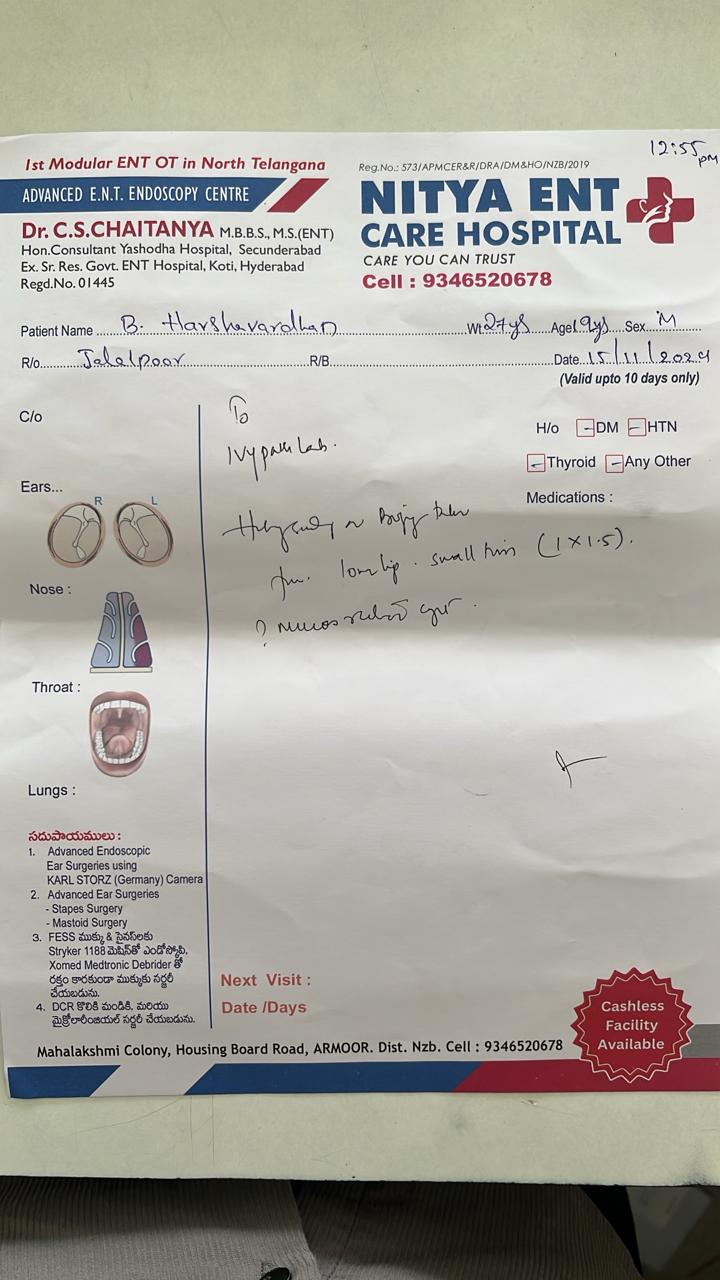 12:55 pm
1st Modular ENT OT in North Telangana
Reg.No.: 573/APMCER&R/DRA/DM&HO/NZB/2019
ADVANCED E.N.T. ENDOSCOPY CENTRE
NITYA ENT
CARE HOSPITAL
CARE YOU CAN TRUST
Cell : 9346520678
Dr. C.S.CHAITANYA M.B.B.S., M.S.(ENT)
Hon.Consultant Yashodha Hospital, Secunderabad
Ex. Sr. Res. Govt. ENT Hospital, Koti, Hyderabad
Regd.No. 01445
Patient Name B. Harshavardhan Wt 27 Age 9ys Sex M
R/o Jalalpoor R/B Date 15/11/2024
(Valid upto 10 days only)
C/o
To
H/o DM HTN
Thyroid Any Other
Medications :
Ivypath Lab.
Ears...
R L
lower lip. small (1 X 1.5).
Nose :
?
Throat :
Lungs :
సదుపాయములు :
1. Advanced Endoscopic
Ear Surgeries using
KARL STORZ (Germany) Camera
2. Advanced Ear Surgeries
- Stapes Surgery
- Mastoid Surgery
3. FESS ముక్కు & సైనస్‌లకు
Stryker 1188 మెషిన్‌తో ఎండోస్కోపి,
Xomed Medtronic Debrider తో
రక్తం కారకుండా ముక్కుకు సర్జరీ
చేయబడును.
4. DCR కొలికి మండికి, మరియు
మైక్రోలారింజియల్ సర్జరీ చేయబడును.
Next Visit :
Date /Days
Cashless
Facility
Available
Mahalakshmi Colony, Housing Board Road, ARMOOR. Dist. Nzb. Cell : 9346520678